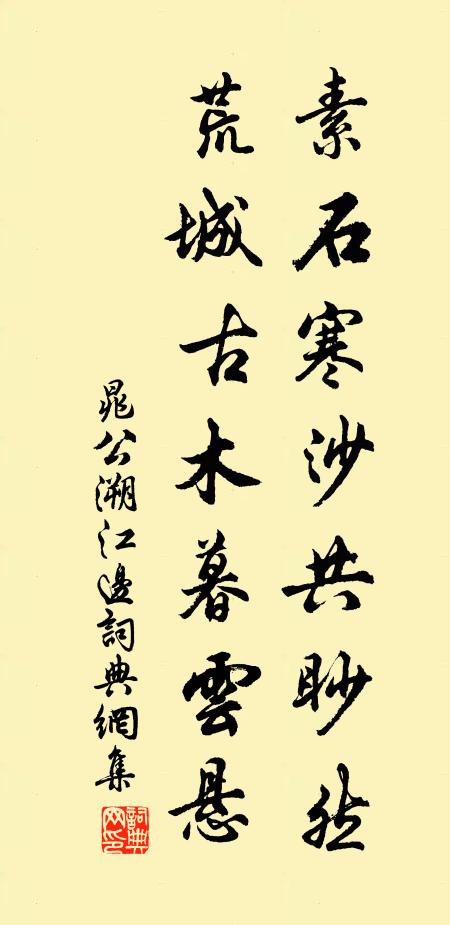 素石寒沙共眇然
荒城古木暮雲懸
晁公溯江邊詞典網集
詞典网印